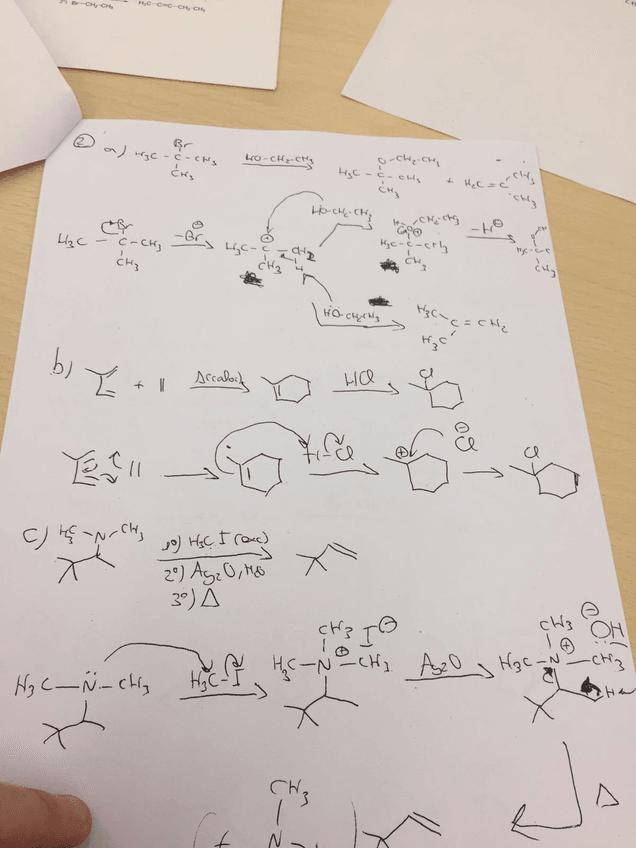 Br-CH₂-CH₃ H₃C-C≡C-CH₂-CH₃
② a) H₃C-C-CH₃ Br CH₃ HO-CH₂-CH₃ H₃C-C-CH₃ O-CH₂-CH₃ CH₃ + H₂C=C CH₃ CH₃
H₃C-C-CH₃ Br CH₃ -Br⊖ H₃C-C-CH₂ ⊕ CH₃ H HO-CH₂-CH₃ H₃C-C-CH₃ CH₂CH₃ CH₃ -H⊕
HO-CH₂CH₃ H₃C H₃C C=CH₂
b) + || Δ(calor) HCl Cl
|| H-Cl ⊕ Cl⊖ Cl
c) H₃C-N-CH₃ 1º) H₃C I (exc)
2º) Ag₂O, H₂O
3º) Δ
H₃C-N-CH₃ H₃C-I H₃C-N-CH₃ CH₃ ⊕ I⊖ Ag₂O H₃C-N-CH₃ CH₃ ⊕ ⊖OH H
Δ
CH₃
( + N